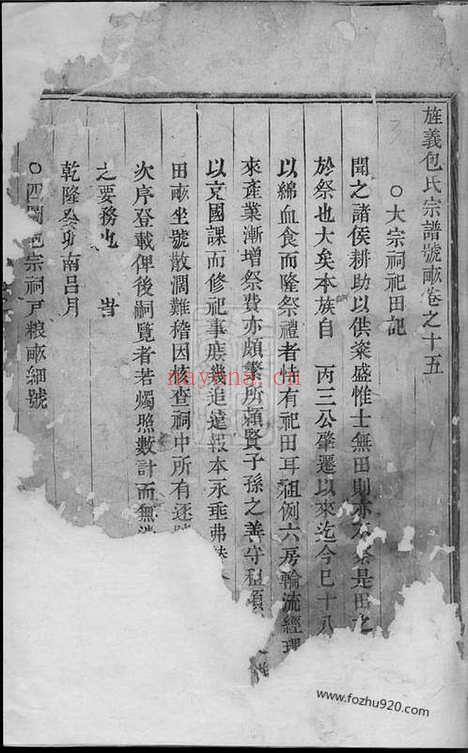 旌義包氏宗譜號畝卷之十五
○大宗祠祀田記
聞之諸侯耕助以供粢盛惟士無田則亦不祭是田之
於祭也大矣本族自 丙三公肇遷以來迄今已十八
以綿血食而隆祭禮者恃有祀田耳祖例六房輪流經理
來產業漸增祭費亦頗繁所頼賢子孫之善守租
以充國課而修祀事庶幾追遠報本永垂弗
田畝坐號散濶難稽因修查祠中所有逐
次序登載俾後嗣覽者若燭照數計而無
之要務也 時
乾隆癸卯南呂月
○四 包宗祠戸粮畝細號
nayona.cn
www.fozhu920.com